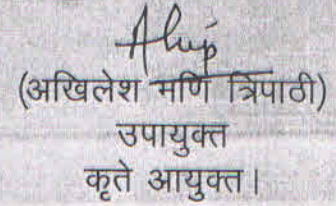 (अखिलेश मणि त्रिपाठी)
उपायुक्त
कृते आयुक्त।